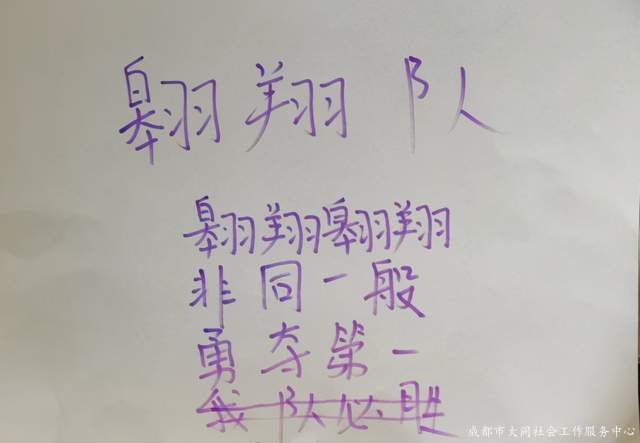 翱翔队
翱翔翱翔
非同一般
勇夺第一
我队必胜
成都市大同社会工作服务中心